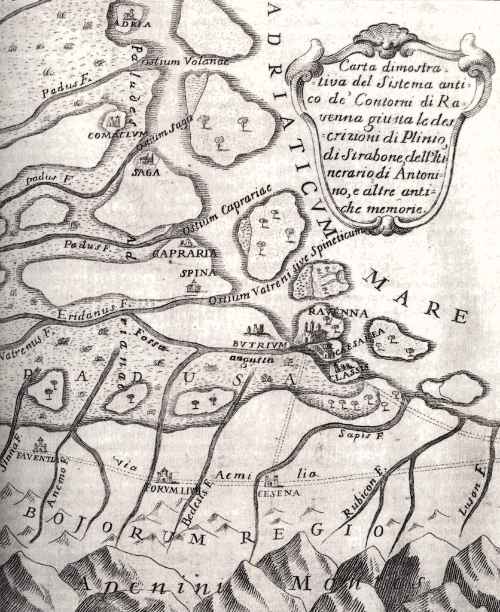 ADRIA
ADRIATICUM
MARE
Carta dimostra-
tiva del Sistema anti-
co de' Contorni di Ra-
venna giusta le des-
crizioni di Plinio,
di Strabone, dell'Iti-
nerario, di Antoni-
no, e altre anti-
che memorie.
Ostium Volanae
Padus F.
Paludes
COMACLUM
Ostium Saga
SAGA
Padus F.
Ostium Caprariae
Ad
Padus F.
CAPRARIA
SPINA
Ostium Vatreni sive Spineticum
Eridanus F.
riana
Fossa
RAVENNA
Vatrenus F.
BUTRIUM
augusta
CAESAREA
CLASSIS
PADUSA
Sapis F.
Sinna F.
FAVENTIA
Anemo F.
Via Aemilia
FORUM LIVII
Bedesis F.
CESENA
Rubicon F.
Luson F.
BOJORUM REGIO
Apenini Montes